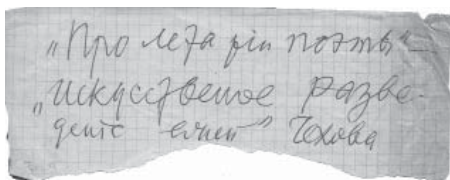 „Пролетарiи поэты“ –
„искусственное разве-
денiе ежей“ Чехова